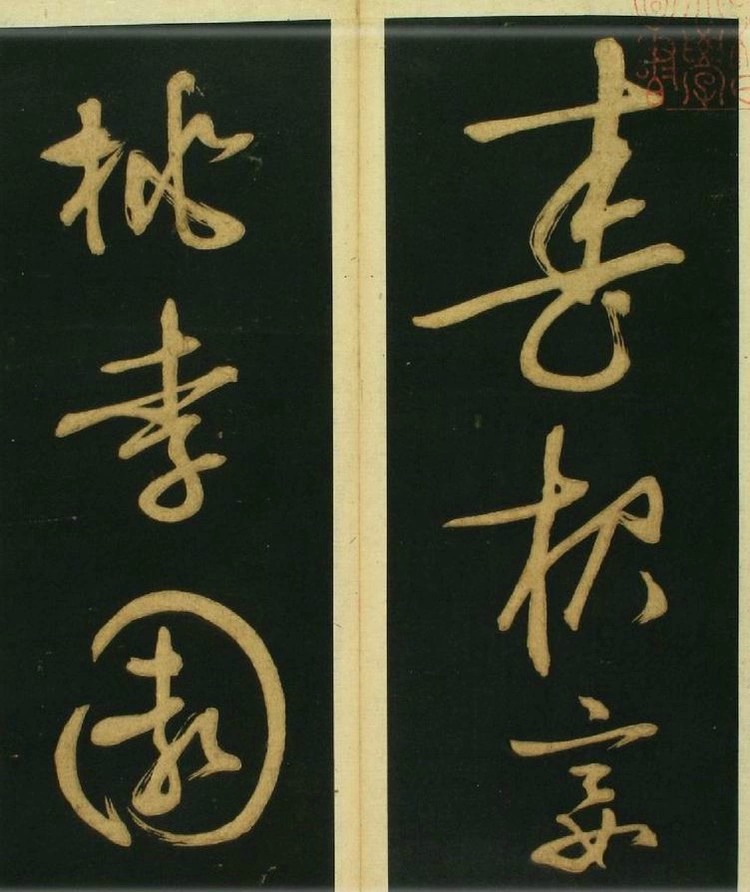 春夜宴
桃李園